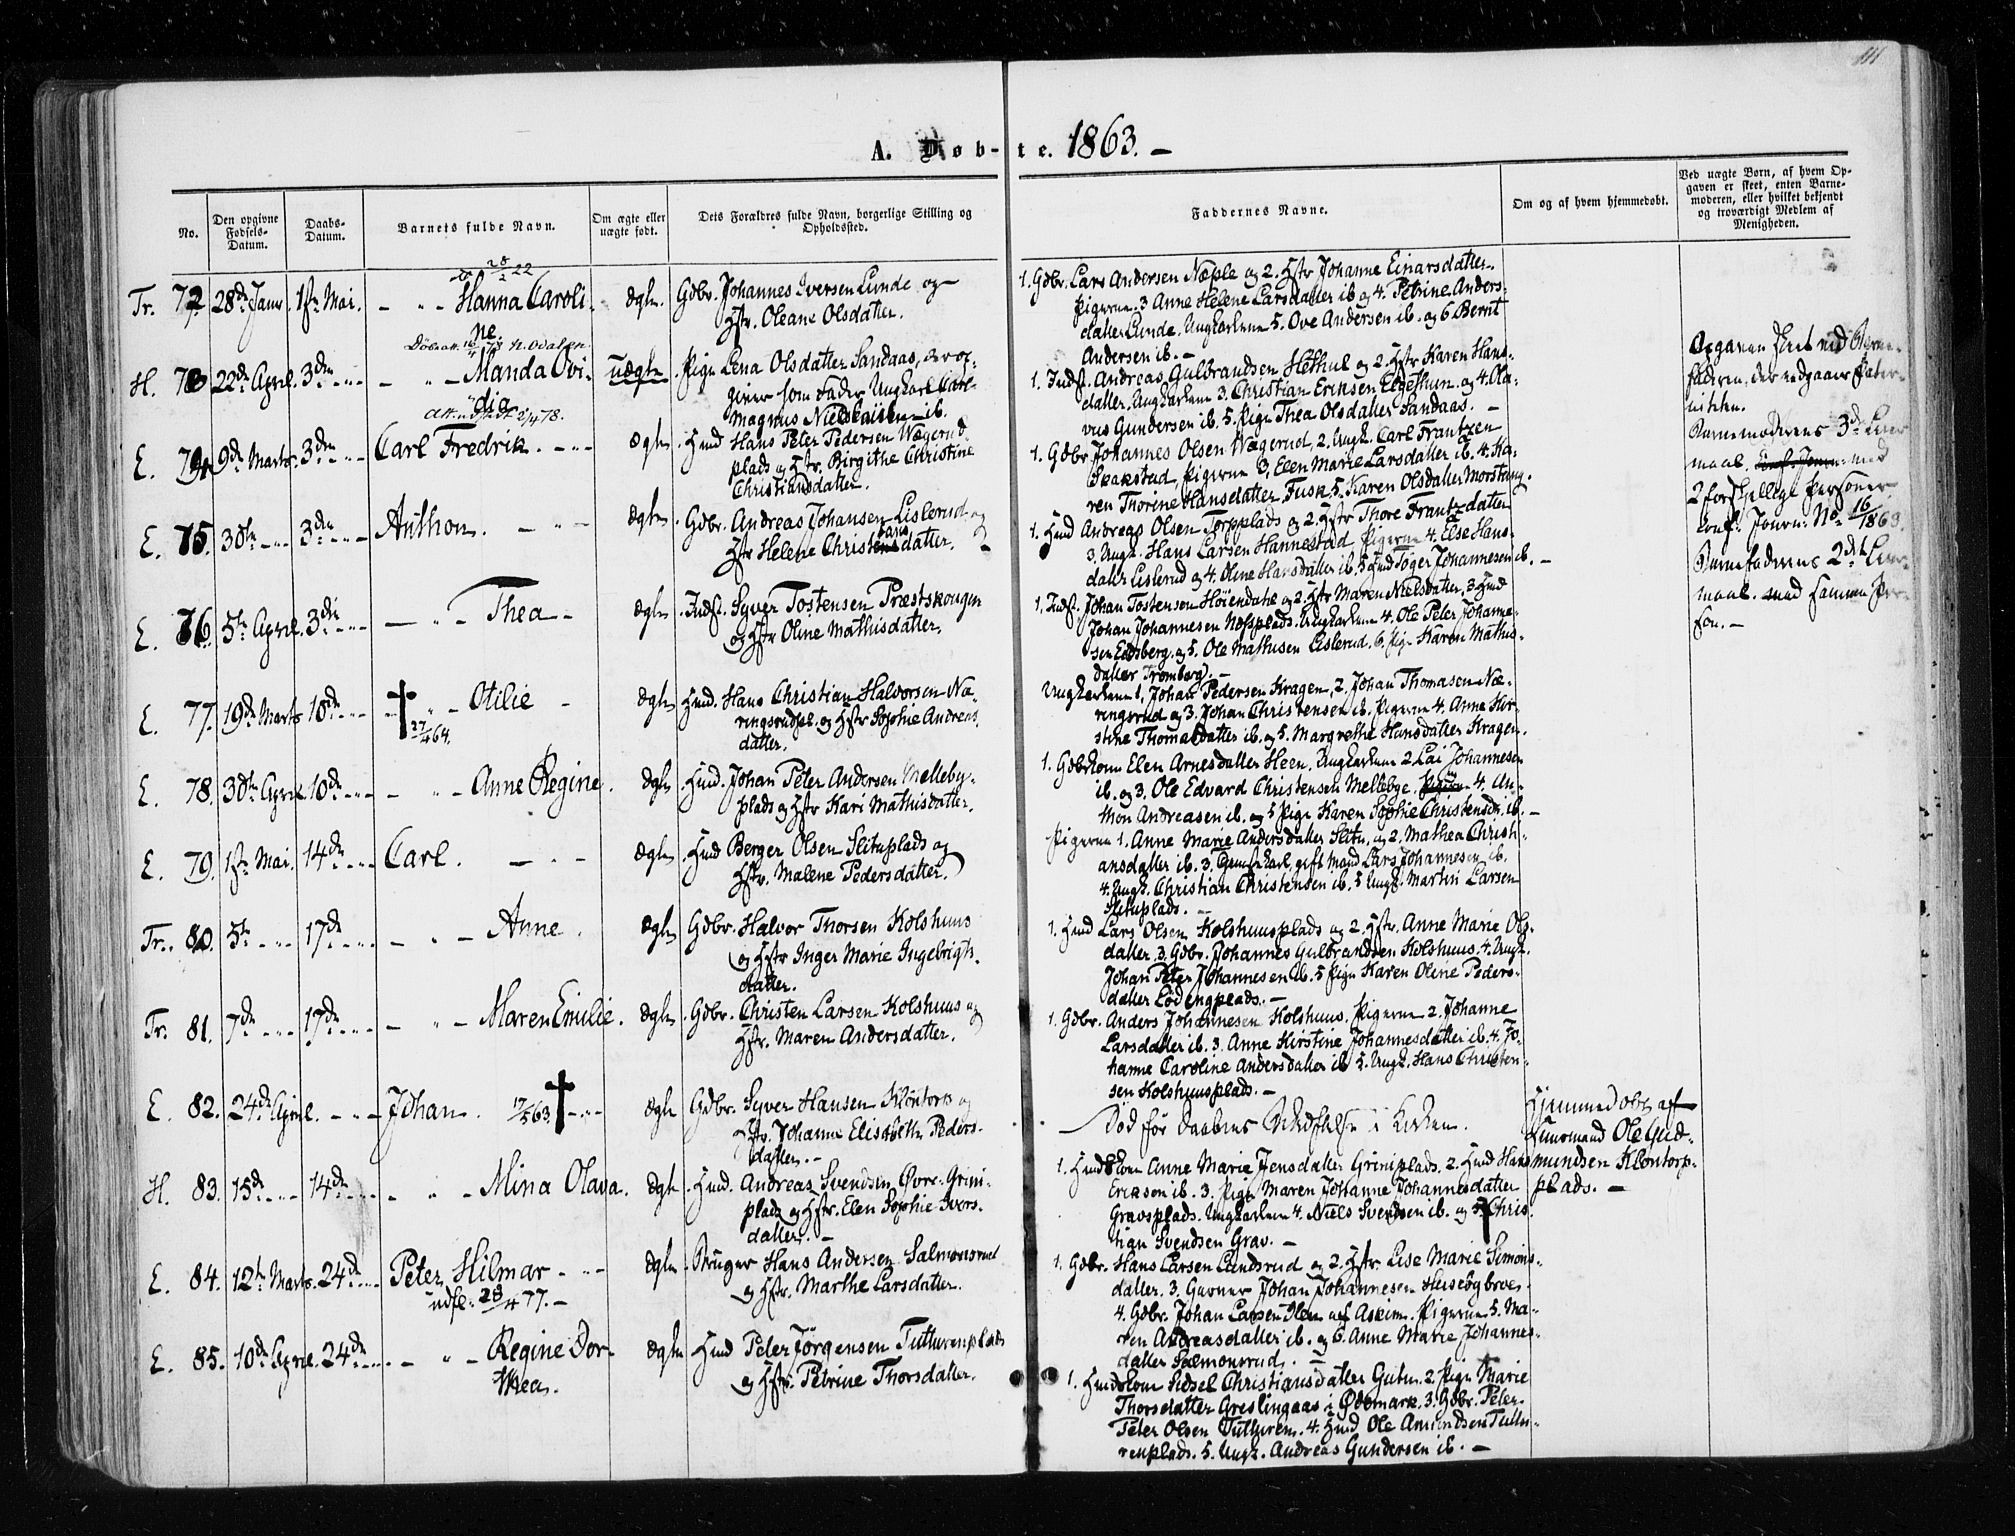 A. Døb-te. 1863. –
No.
Den opgivne Fødsels-Datum.
Daabs-Datum.
Barnets fulde Navn.
Om ægte eller uægte født.
Dets Forældres fulde Navn, borgerlige Stilling og Opholdssted.
Faddernes Navne.
Om og af hvem hjemmedøbt.
Ved uægte Børn, af hvem Op-
gaven er skeet, enten Barne-
moderen, eller hvilket bekjendt
og troværdigt Medlem af
Menigheden.
Tr. 72 28de Janr. 1ste Mai. – " – Hanna Caroli- ægte. Gdbr. Johannes Iversen Lunde og
ne
Hstr. Oleane Olsdatter.
1. Gdbr. Lars Andersen Næple og 2. Hstr Johanne Einarsdatter.
Pigerne 3 Anne Helene Larsdatter ib og 4. Petrine Anders-
datter Lunde. Ungkarlene 5. Ove Andersen ib. og 6 Bernt
Andersen ib. –
H. 73 22de April. 3die – " – Manda Ovi- uægte Pige Lena Olsdatter Sandaas, der op-
dia
giver som Fader Ungkarl Carl
Magnus Nielsen ib.
1. Indst. Andreas Gulbrandsen Hethul og 2. Hstr Karen Hans-
datter. Ungkarlene 3. Christian Eriksen Elgethun. og 4. Ola-
vus Gundersen ib. 5. Pige Thea Olsdatter Sandaas. –
Opgaven skeet ved Barne-
faderen, der vedgaaer Pater-
niteten.
Barnemoderens 3die Leier
maal. med
2 forskjellige Personer
conf. Journ. No 16/1863.
Barnefaderens 2det Leier-
maal. med samme Per-
son. –
E. 74 9de Marts. 3die Carl Fredrik. – " – ægte. Hmd Hans Peter Pedersen Wægerud-
plads og Hstr. Birgithe Christine
Christiansdatter.
1. Gdbr Johannes Olsen Wægerud, 2. Ungk. Carl Frantzen
Skakstad, Pigerne 3. Elen Marie Larsdatter ib. 4. Ka-
ren Thorine Hansdatter Fusk 5. Karen Olsdatter Morstong.
E. 75. 30te – " – 3die Anthon. – " – ægte. Gdbr. Andreas Johansen Lislerud og
Hstr Helene Christensdatter.
1. Hmd Andreas Olsen Torpplads og 2. Hstr Thore Frantzdatter
3. Ungk. Hans Larsen Hannestad Pigerne 4. Else Hans-
datter Lislerud og 4. Oline Hansdatter ib. 5 Hmd Tøger Johannesen ib. –
E. 76. 5te April. 3die – " – Thea – ægte. Indst. Syver Tostensen Præstskougen
og Hstr Oline Mathisdatter.
1. Indst. Johan Tostensen Høiendahl og 2. Hstr Maren Nielsdatter, 3 Hmd
Johan Johannesen Næsplads. Ungkarlene 4. Ole Peter Johanne-
sen Eidsberg. og 5. Ole Mathisen Lislerud. 6. Pige Karen Mathis-
datter Tromborg. –
E. 77. 19de Marts 10de – " – Otilie – ægte Hmd. Hans Christian Halvorsen Næ-
27/4 64.
ringsrudpl. og Hstr Sophie Andreas-
datter.
Ungkarlene 1. Johan Pedersen Kragen, 2. Johan Thomasen Næ-
ringsrud og 3. Johan Christensen ib. Pigerne 4. Anne Kir-
stine Thomasdatter ib. og 5. Margrethe Hansdatter Kragen.
E. 78. 30te April 10de – " – Anne Regine. ægte Hmd. Johan Peter Andersen Melleby-
plads og Hstr Kari Mathisdatter.
1. Gdbrkone Elen Arnesdatter Heen, Ungkarlene 2 Lai Johannesen
ib. og 3. Ole Edvard Christensen Mellebye. 4. An-
thon Andreasen ib. og 5 Pige Karen Sophie Christensdr. ib. –
E. 79. 1ste Mai. 14de Carl. – " – ægte. Hmd Berger Olsen Slituplads og
Hstr. Malene Pedersdatter.
Pigerne 1. Anne Marie Andersdatter Slitu. og 2. Mathea Christi-
ansdatter ib. 3. gift Mand Lars Johannesen ib.
4. Ungk. Christian Christensen ib. 5 Ungk. Martin Larsen
Slituplads. –
Tr. 80. 5te – " – 17de – " – Anne. ægte Gdbr. Halvor Thorsen Kolshuus
og Hstr Inger Marie Ingebrigts-
datter.
1. Hmd Lars Olsen Kolshuusplads og 2. Hstr. Anne Marie Ols-
datter. 3. Gdbr. Johannes Gulbrandsen Kolshuus. 4. Ungk.
Johan Peter Johannesen ib. 5 Pige Karen Oline Peders-
datter Lødengplads. –
Tr. 81. 7de – " – 17de – " – Maren Emilie. ægte. Gdbr. Christen Larsen Kolshuus og
Hstr. Maren Andersdatter.
1. Gdbr. Anders Johannesen Kolshuus. Pigerne 2. Johanne
Larsdatter ib. 3. Anne Kirstine Johannesdatter ib. 4. Jo-
hanne Caroline Andersdatter ib 5. Ungk. Hans Christen-
sen Kolshuusplads. –
E. 82. 24de April. – " – Johan. 17/5 63 – " – ægte Gdbr. Syver Hansen Kløntorp og
Hstr. Johanne Elisabeth Peders-
datter. –
Død før Daabens Stadfæstelse i Kirken.
Hjemmedøbt af
Huusmand Ole Gud-
mundsen Kløntorp-
plads. –
H. 83. 15de – " – 14de – " – Mina Olava. ægte. Hmd. Andreas Svendsen Øvre-Grini-
plads og Hstr. Elen Sophie Ivers-
datter. –
1. Hmdskone Anne Marie Jensdatter Griniplads. 2. Hmd Hans
Eriksen ib. 3. Pige Maren Johanne Johannesdatter
Gravsplads. Ungkarlene 4. Niels Svendsen ib. og 5. Chris-
tian Svendsen Grav. –
E. 84. 12te Marts. 24de Peter Hilmar – " – ægte. Bruger Hans Andersen Salmonsrud
udfl: 28/4 77. –
og Hstr. Marthe Larsdatter.
1. Gdbr. Hans Larsen Lundsrud og 2. Hstr Lise Marie Simons-
datter. 3. Garver Johan Johannesen Husebybroe.
4. Gdbr. Johan Larsen Ilen af Askim. Pigerne 5. Ma-
ren Andreasdatter ib. og 6. Anne Marie Johannes-
datter Salmonsrud. –
E. 85. 10de April. 24de – " – Regine Dor- ægte Hmd Peter Jørgensen Tutturenplads
thea.
og Hstr. Petrine Thorsdatter.
1. Hmdskone Sidsel Christiansdatter Gutu. 2. Pige Marie
Thorsdatter Greslingaas i Ødemark. 3. Gdbr. Peter
Peter Olsen Tutturen. 4. Hmd Ole Amundsen Tuttu-
renplads. 5. Ungk. Andreas Gundersen ib. –